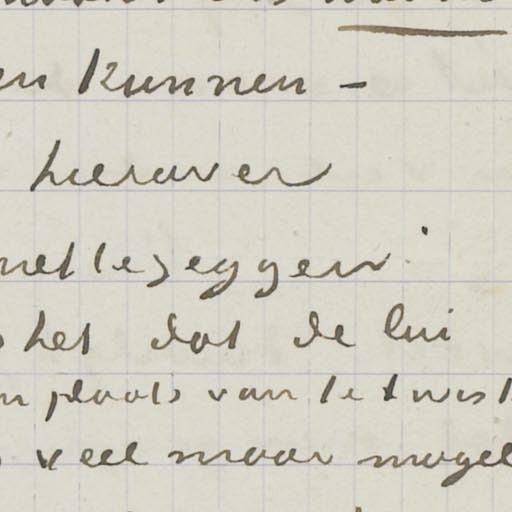 en kunnen –
hierover
net te zeggen.
het dat de lui
in plaats van te twist
veel maar mogel